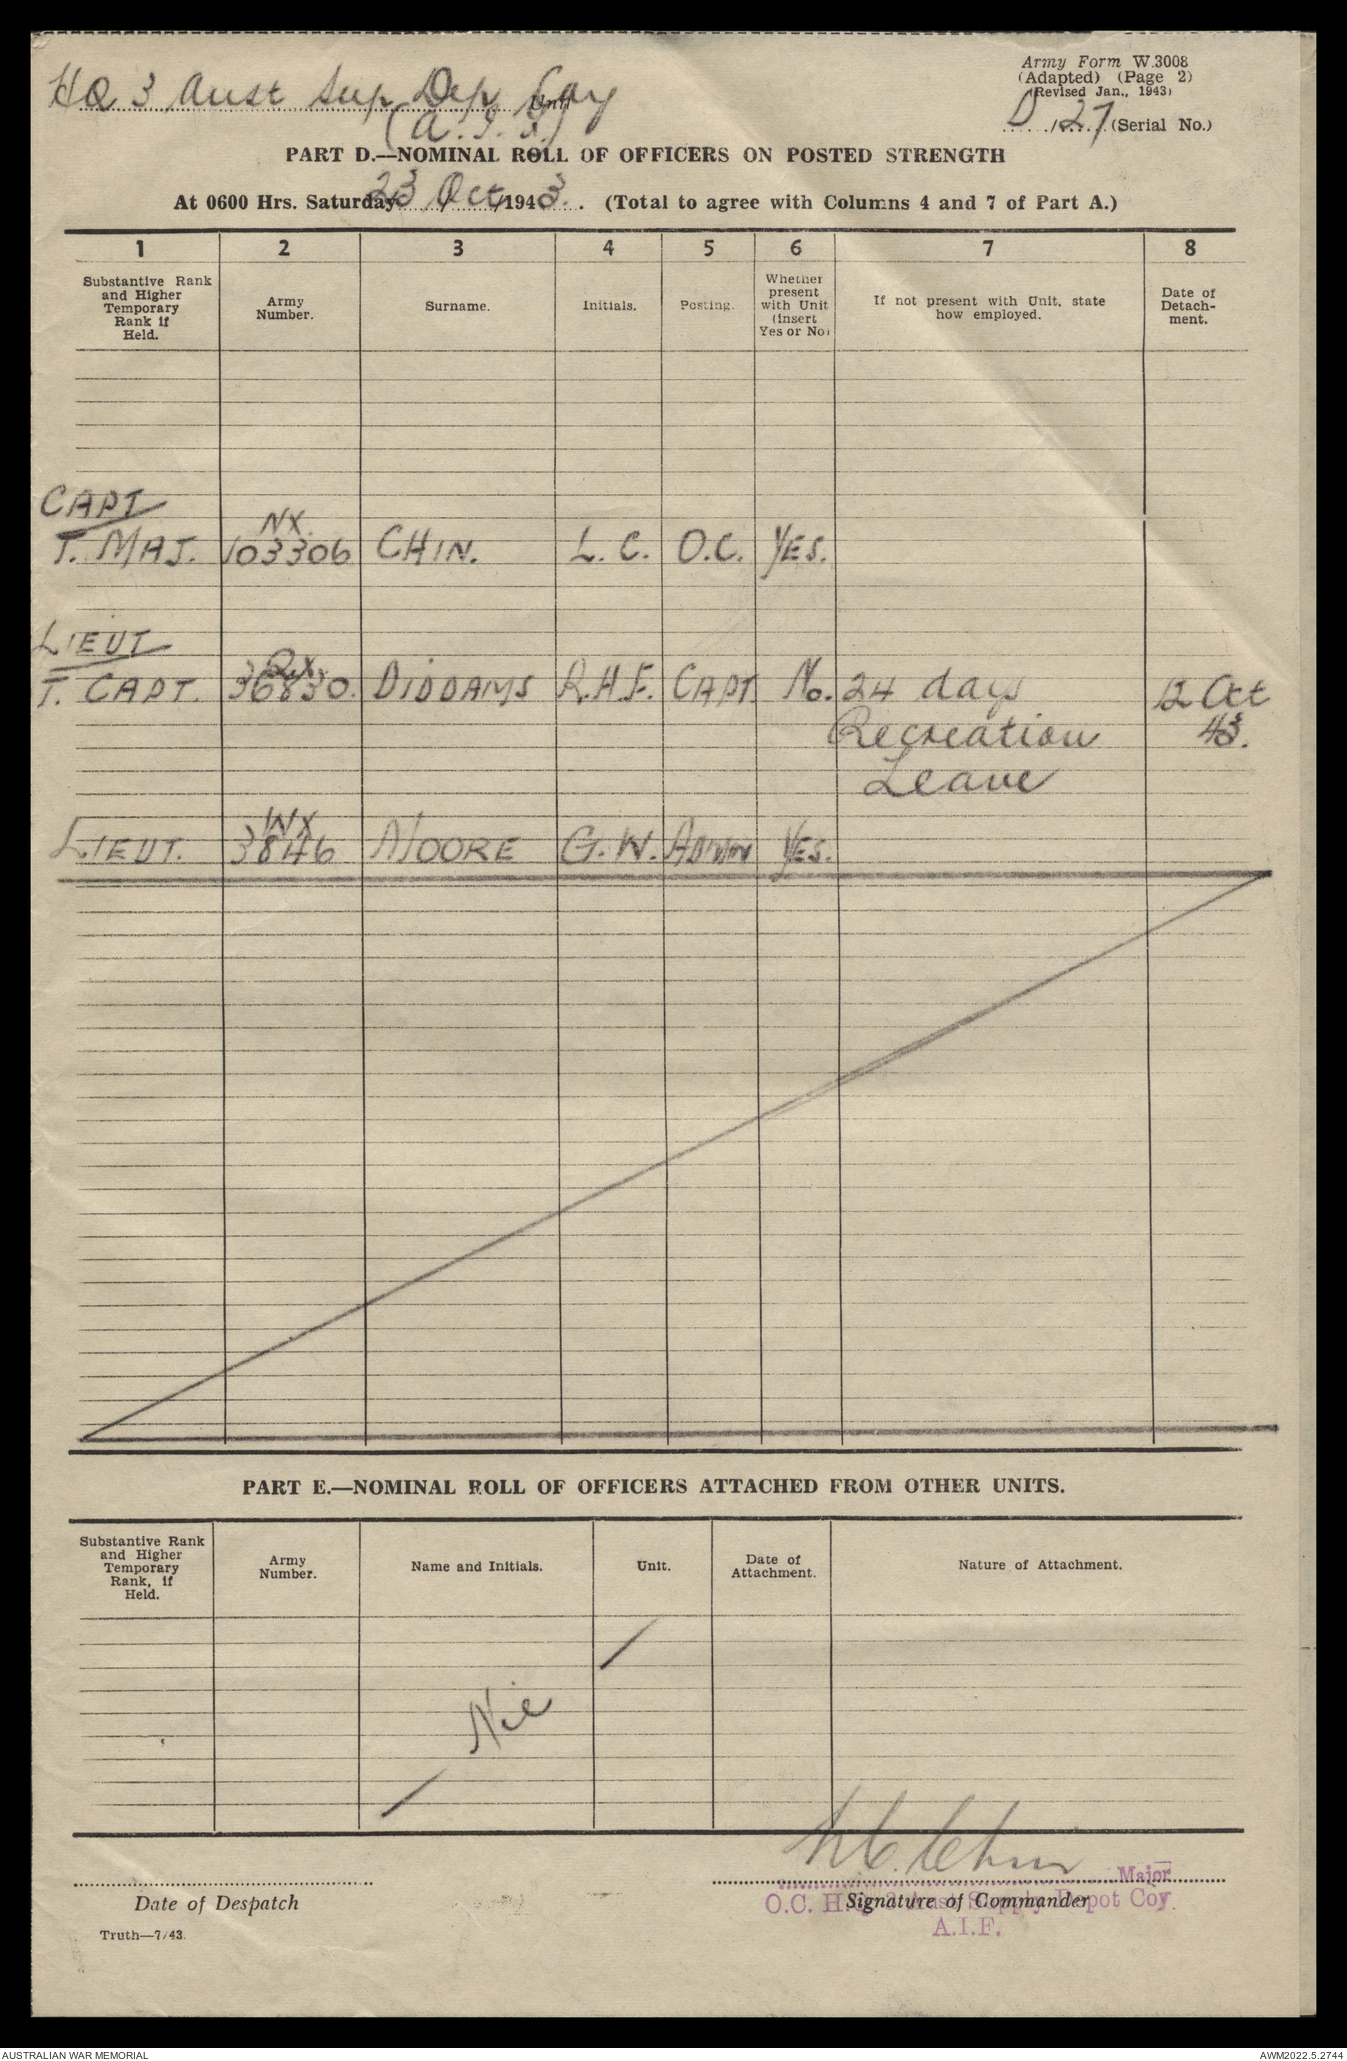 Army Form W.3008
(Adapted) (Page 2)
(Revised Jan., 1943)
HQ 3 Aust Sup Dep Coy Unit
(A.I.F.)
D / 27 (Serial No.)
PART D.—NOMINAL ROLL OF OFFICERS ON POSTED STRENGTH
At 0600 Hrs. Saturday 23 / Oct /1943. (Total to agree with Columns 4 and 7 of Part A.)
1 2 3 4 5 6 7 8
Substantive Rank and Higher Temporary Rank if Held. Army Number. Surname. Initials. Posting. Whether present with Unit (insert Yes or No) If not present with Unit, state how employed. Date of Detach-ment.
CAPT
T. MAJ. NX 103306 CHIN. L. C. O.C. YES.
LIEUT
T. CAPT. QX 36830. DIDDAMS R.H.F. CAPT No. 24 days Recreation Leave 12 Oct 43.
LIEUT. WX 3846 MOORE G. W. ADMIN YES.
PART E.—NOMINAL ROLL OF OFFICERS ATTACHED FROM OTHER UNITS.
Substantive Rank and Higher Temporary Rank, if Held. Army Number. Name and Initials. Unit. Date of Attachment. Nature of Attachment.
/ Nil /
L C. Chin Major
Date of Despatch
Signature of Commander
O.C. H.Q. 3 Aust Supply Depot Coy.
A.I.F.
Truth—7/43.
AUSTRALIAN WAR MEMORIAL
AWM2022.5.2744